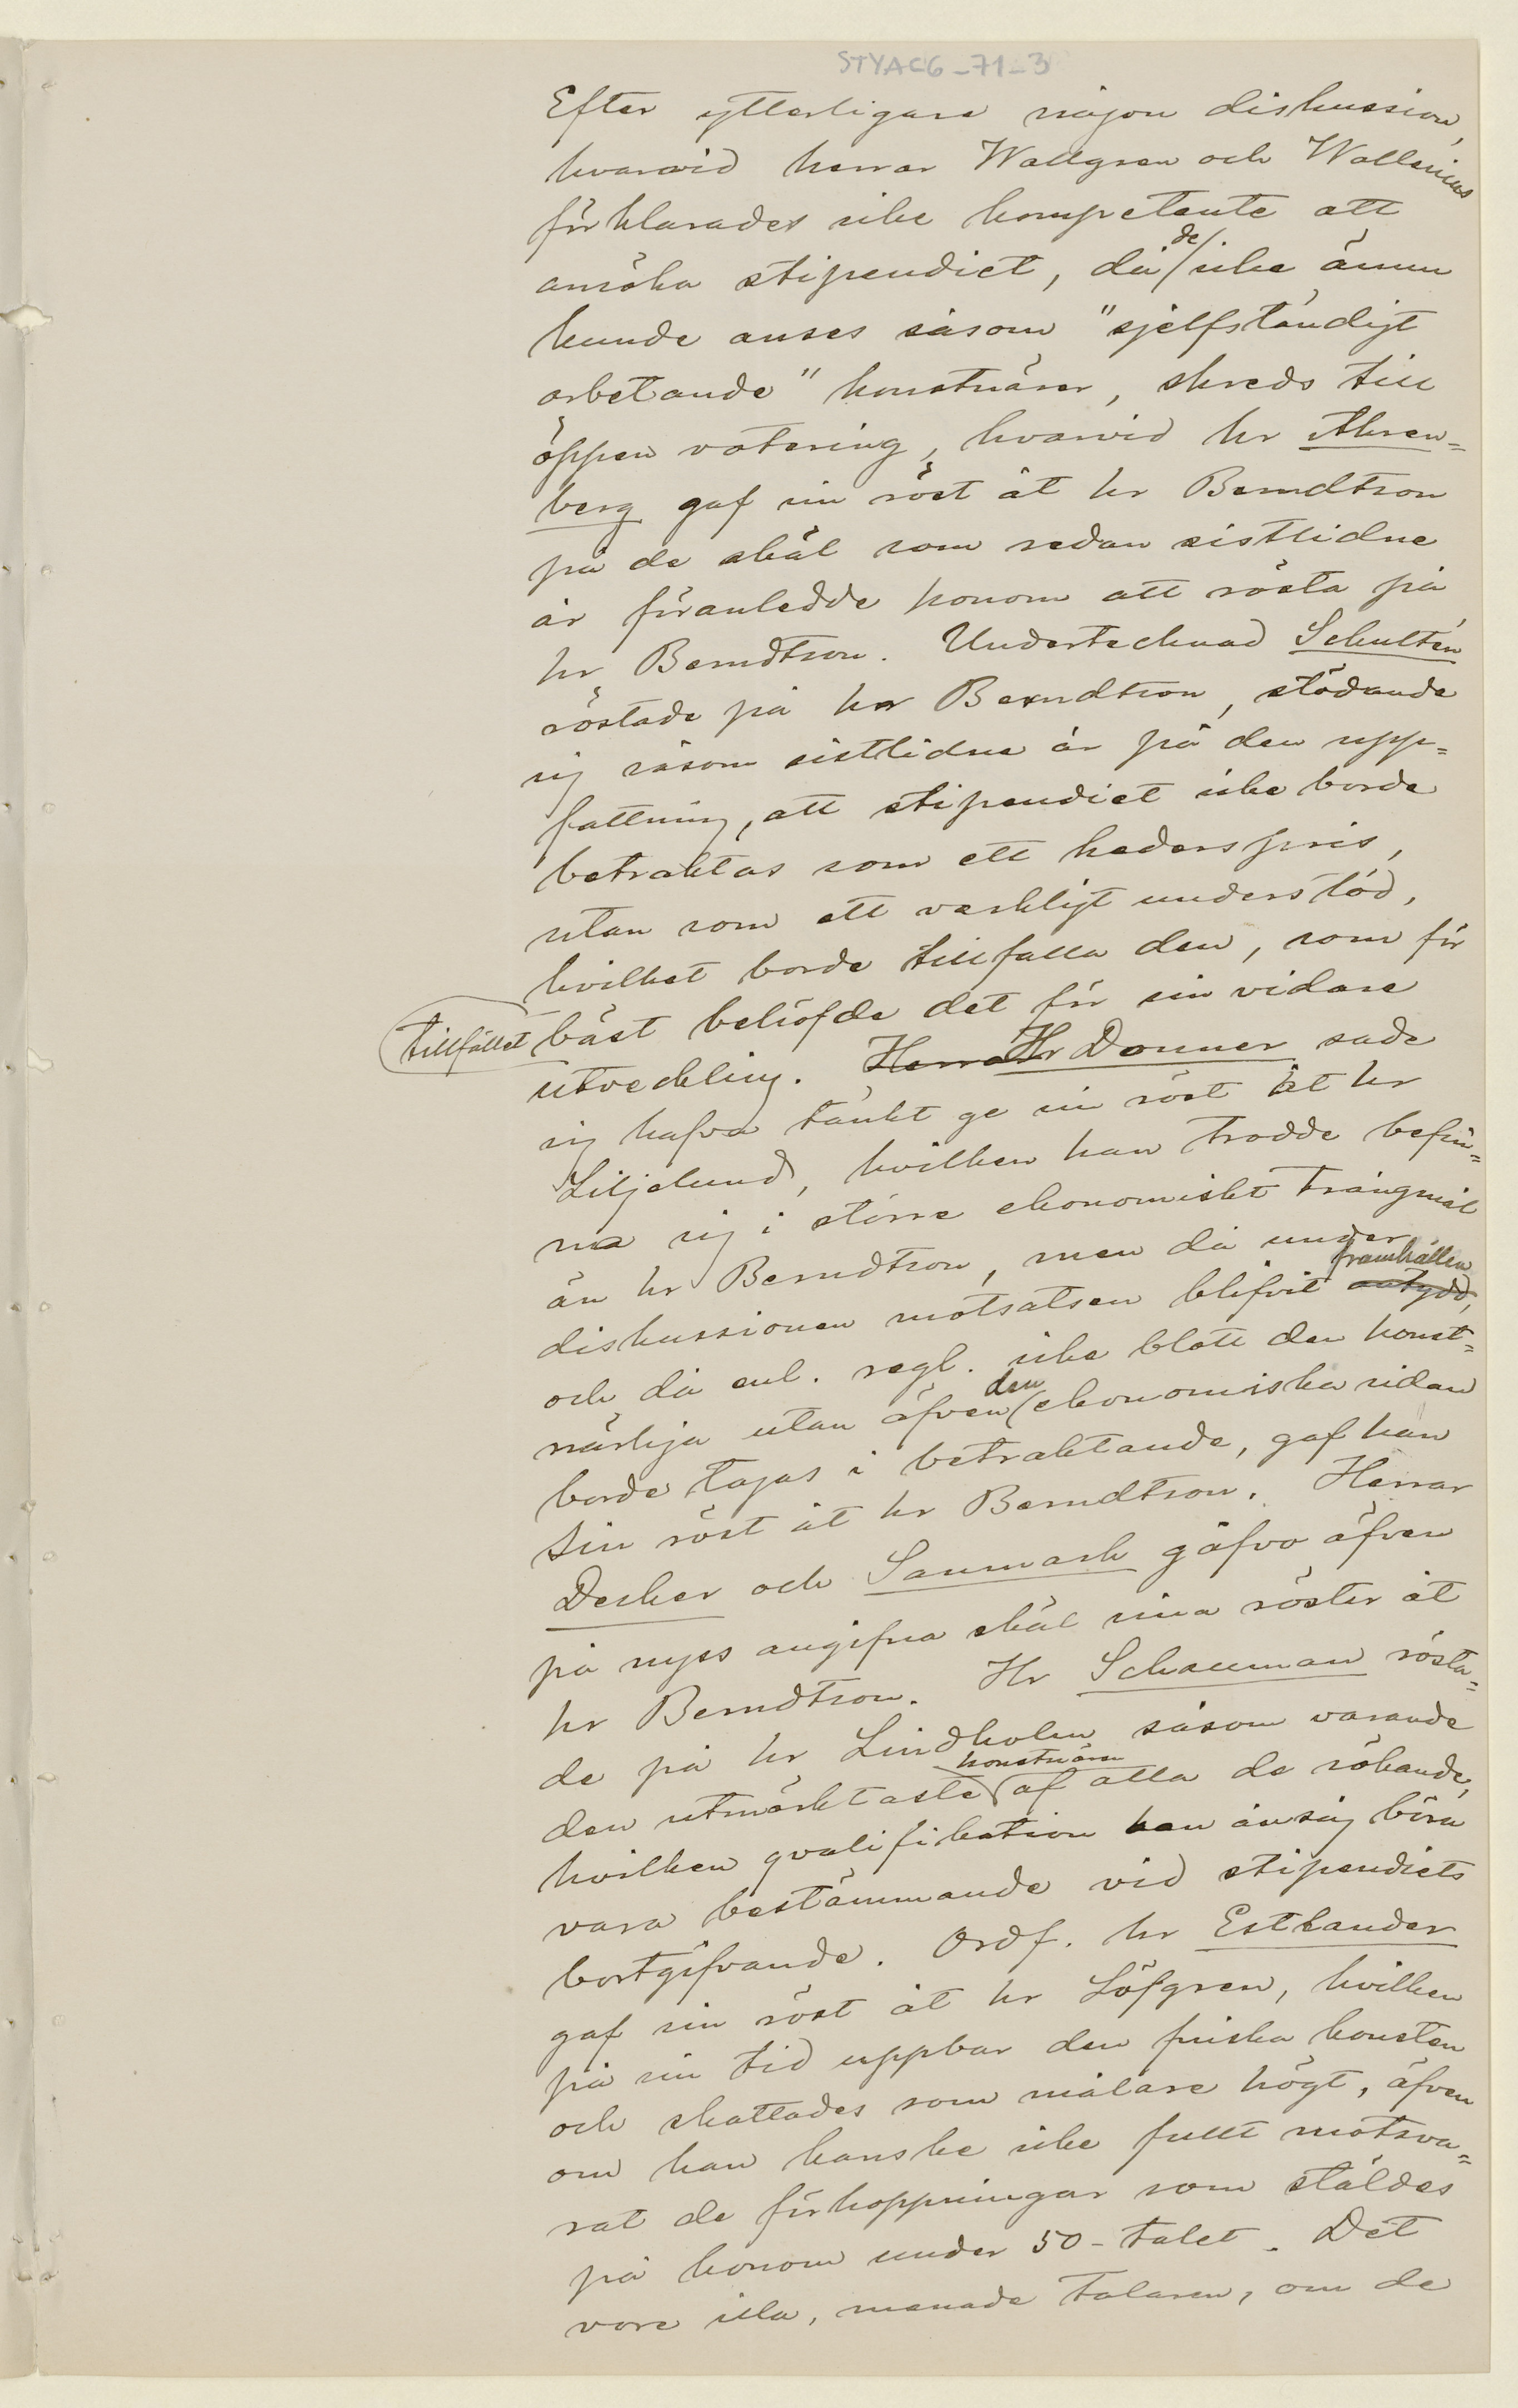 STYAC6-71-3
Efter ytterligare någon diskussion,
hvarvid herrar Wallgren och Wallenius
förklarades icke kompetente att
ansöka stipendiet, då de icke ännu
kunde anses såsom "sjelfständigt
arbetande" konstnärer, skreds till
öppen votering, hvarvid hr Ahren-
berg gaf sin röst åt hr Berndtson
på de skäl som redan sistlidne
år föranledde honom att rösta på
hr Berndtson. Undertecknad Schultén
röstade på hr Berndtson, stödande
sig såsom sistlidne år på den upp-
fattning, att stipendiet icke borde
betraktas som ett hederspris,
utan som ett verkligt understöd,
hvilket borde tillfalla den, som för
tillfället bäst behöfde det för sin vidare
utveckling. Herra Hr Donner sade
sig hafva tänkt ge sin röst åt hr
Liljelund, hvilken han trodde befin-
na sig i större ekonomiskt trångmål
än hr Berndtson, men då under
diskussionen motsatsen blifvit antydd, framhållen
och då enl. regl. icke blott den konst-
närliga utan äfven den ekonomiska sidan
borde tagas i betraktande, gaf han
sin röst åt hr Berndtson. Herrar
Decker och Sanmark gåfvo äfven
på nyss angifna skäl sina röster åt
hr Berndtson. Hr Schauman rösta-
de på hr Lindholm såsom varande
den utmärktaste konstnären af alla de sökande,
hvilken qvalifikation han ansåg böra
vara bestämmande vid stipendiets
bortgifvande. Ordf. hr Estlander
gaf sin röst åt hr Löfgren, hvilken
på sin tid uppbar den finska konsten
och skattades som målare högt, äfven
om han kanske icke fullt motsva-
rat de förhoppningar som stäldes
på honom under 50-talet. Det
vore illa, menade talaren, om de